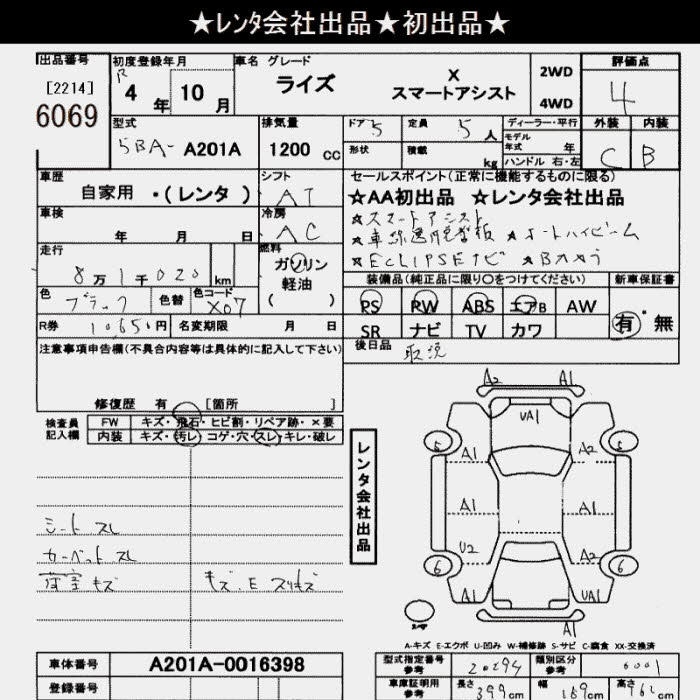 ★レンタ会社出品★初出品★
出品番号 初度登録年月 車名 グレード 2WD 評価点
[2214] R 4年 10月 ライズ X スマートアシスト 4WD 4
6069
型式 5BA-A201A 排気量 1200 cc
ドア 5 定員 5人 ディーラー・平行 外装 内装
形状 積載 kg モデル年式 年 C B
ハンドル 右・左
車歴 自家用・(レンタ) シフト AT
セールスポイント(正常に機能するものに限る)
☆AA初出品 ☆レンタ会社出品
車検 年 月 日 冷房 AC
☆スマートアシスト
☆オートハイビーム
☆ECLIPSEナビ ☆Bカメラ
走行 8万1千020 km 燃料 ガソリン 軽油 ( )
装備品(純正品に限り〇をつけてください) 新車保証書
色 ブラック 色替 色コード X07
PS PW ABS エアB AW 有・無
R券 10,650円 名変期限 月 日
SR ナビ TV カワ
注意事項申告欄(不具合内容等は具体的に記入して下さい)
後日品 取説
修復歴 有 [箇所 ]
検査員記入欄 FW キズ・飛石・ヒビ割・リペア跡・×要
内装 キズ・汚レ・コゲ・穴・スレ・キレ・破レ
シート スレ
カーペット スレ
荷室 キズ
レンタ会社出品
A2 A1
UA1
5 5
A1 A2
A1 A1
U2 A2
6 6
A1 UA1
A-キズ E-エクボ U-凹み W-補修跡 S-サビ C-腐食 XX-交換済
車体番号 A201A-0016398
型式指定番号 参考 20294 類別区分 参考 0001
登録番号
車庫証明用 参考 長さ 399cm 幅 169cm 高さ 162cm